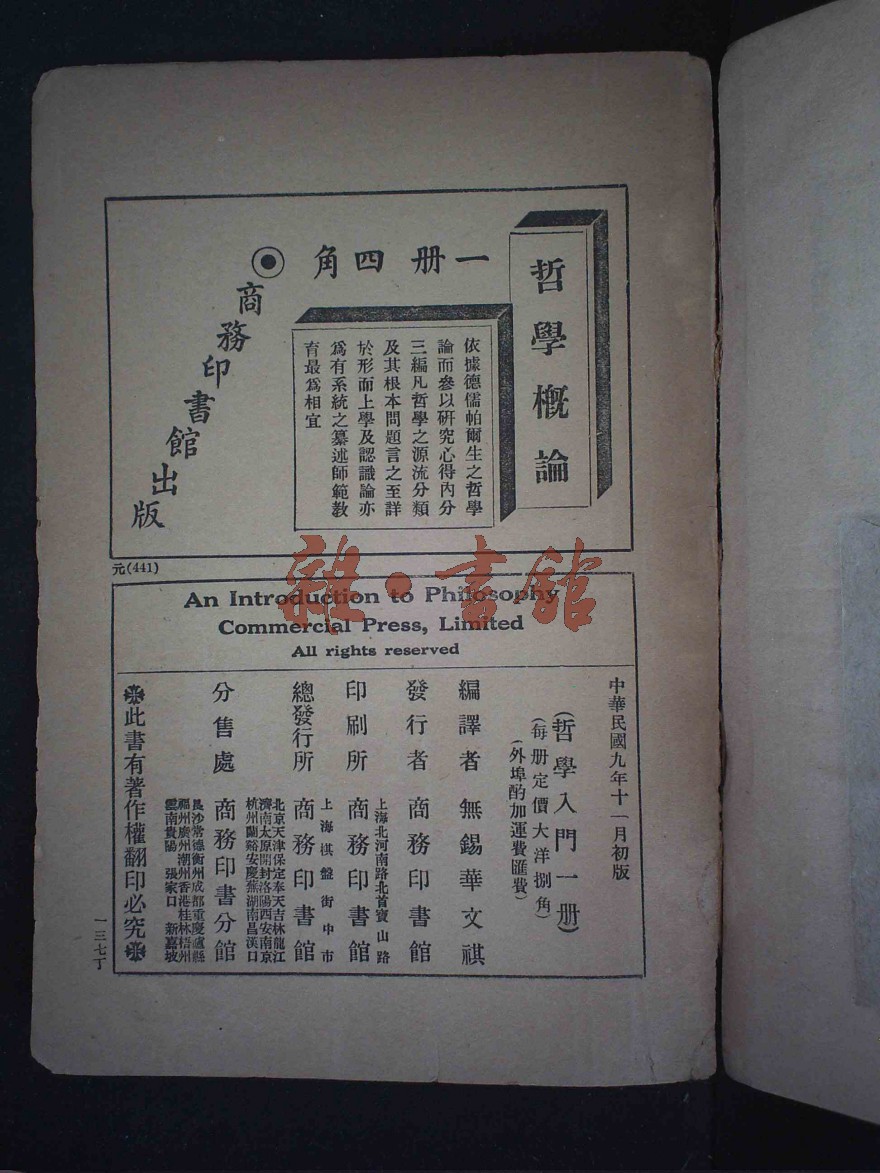 哲學概論
一册四角
依據德儒帕爾生之哲學
論而參以研究心得內分
三編凡哲學之源流分類
及其根本問題言之至詳
於形而上學及認識論亦
爲有系統之纂述師範教
育最爲相宜
商務印書館出版
元(441)
雜·書館
An Introduction to Philosophy
Commercial Press, Limited
All rights reserved
中華民國九年十一月初版
(哲學入門一册)
(每册定價大洋捌角)
(外埠酌加運費匯費)
編譯者 無錫華文祺
發行者 商務印書館
上海北河南路北首寶山路
印刷所 商務印書館
上海棋盤街中市
總發行所 商務印書館
北京天津保定奉天吉林龍江
濟南太原開封洛陽西安南京
杭州蘭谿安慶蕪湖南昌漢口
分售處 商務印書分館
長沙常德衡州成都重慶瀘縣
福州廣州潮州香港桂林梧州
雲南貴陽 張家口 新嘉坡
此書有著作權翻印必究
一三七丁